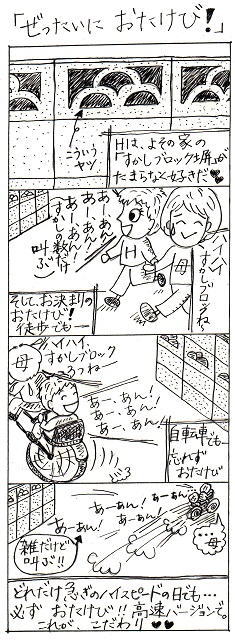 「ぜったいに おたけび!」
こういう
ヤツ
Hは、よその家の
「すかしブロック塀」が
たまらなく好きだ♥
あー、あん!
あー、あん!
あー、あん!
すかしの数だけ
叫ぶ
H
母
ハイハイ
すかしブロックね
そして、お決まりの
おたけび!
徒歩でも―
母
ハイハイ、
すかしブロック
3つねー
あー、あん!
あー、あん!
あー、あん!
自転車でも
忘れず
おたけび
あーあん!
あーあん!
あーあん!
あーあん
雑だけど
叫ぶ!!
…母
どれだけ急ぎのハイスピードの日でも…
必ず おたけび!! 高速バージョンで。
これが、こだわり♥♥